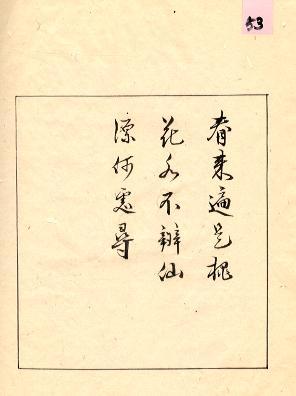 53
春来遍是桃
花水不辨仙
源何處尋